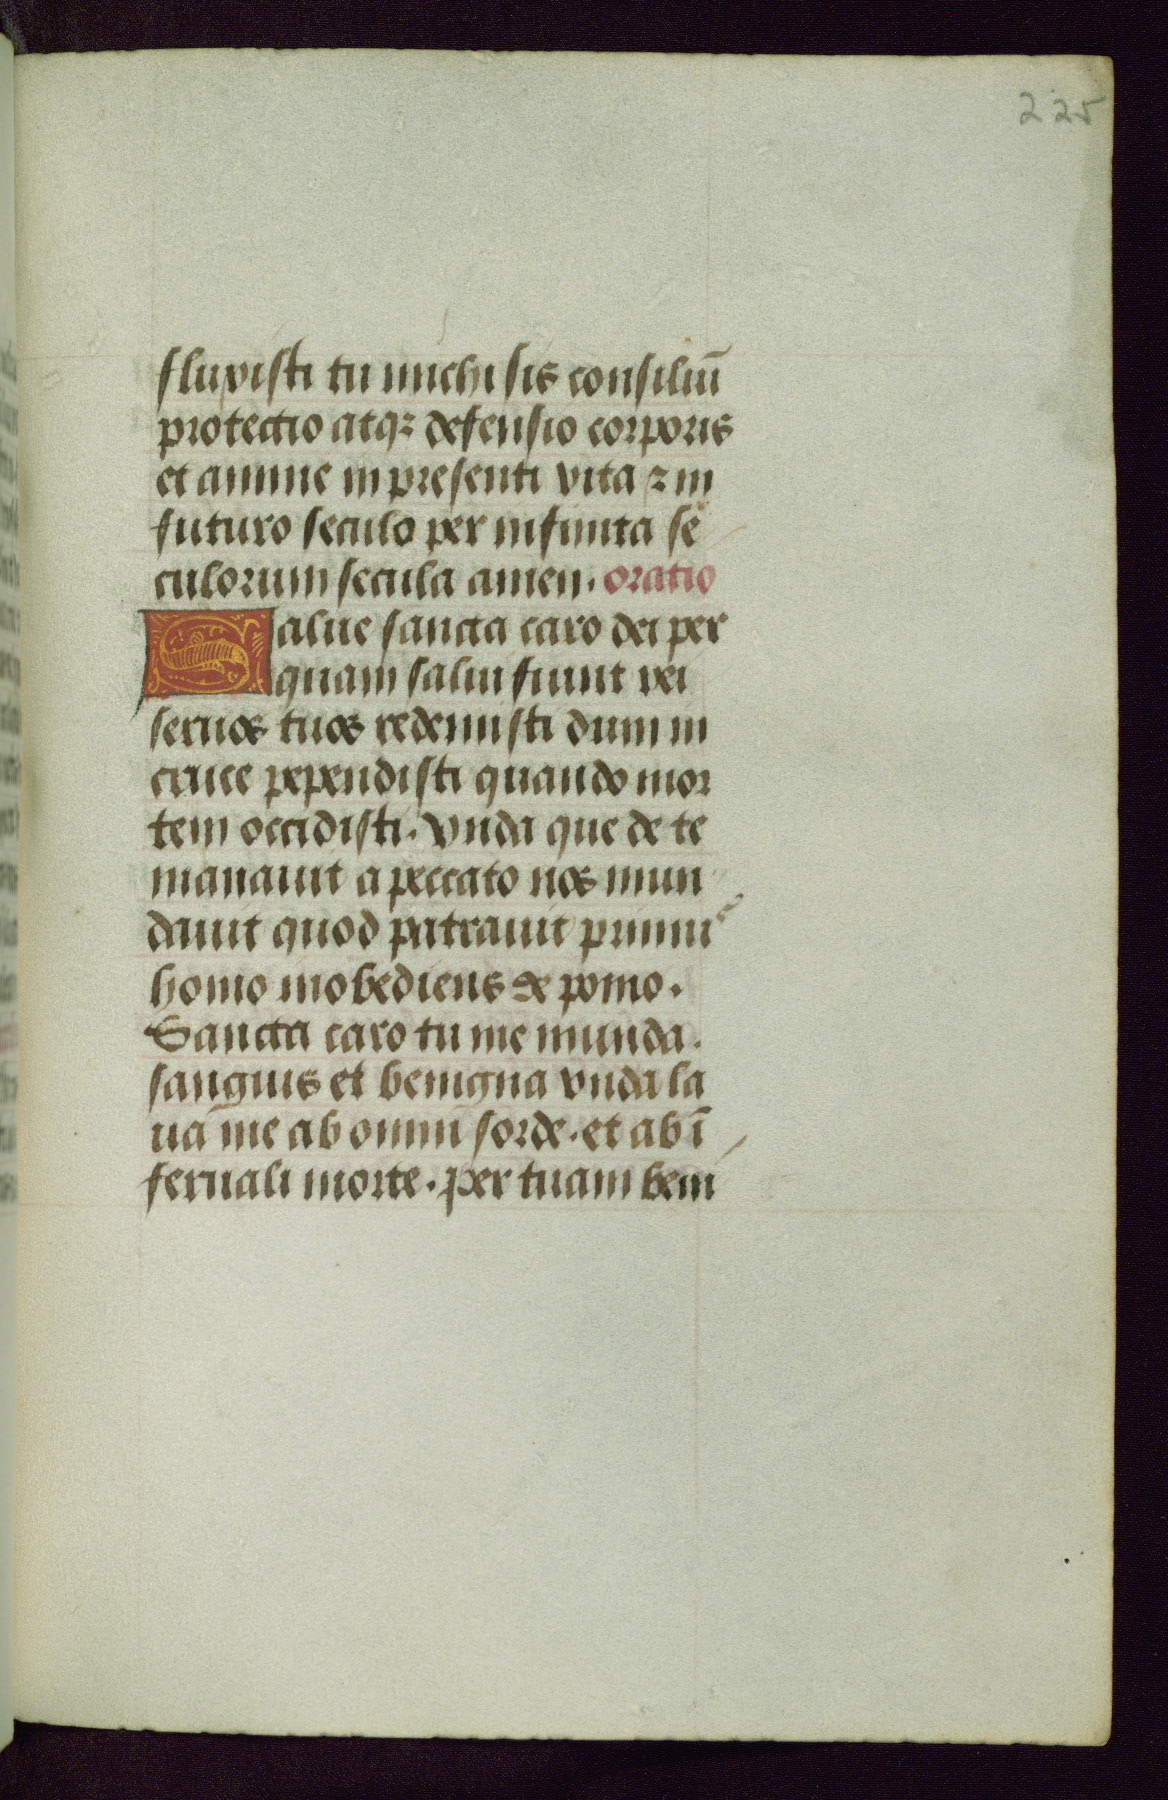 225
fluxisti tu michi sis consiliū
protectio atqꝫ defensio corporis
et anime in presenti vita ⁊ in
futuro seculo per infinita se
culorum secula amen. oratio
Salue sancta caro dei per
quam salui fiunt rei
seruos tuos redemisti dum in
cruce pependisti quando mor
tem occidisti. vnda que de te
manauit a peccato nos mun
dauit quod patrauit primus
homo inobediens ex pomo.
Sancta caro tu me munda.
sanguis et benigna vnda la
ua me ab omni sorde. et ab ī
fernali morte. per tuam beni